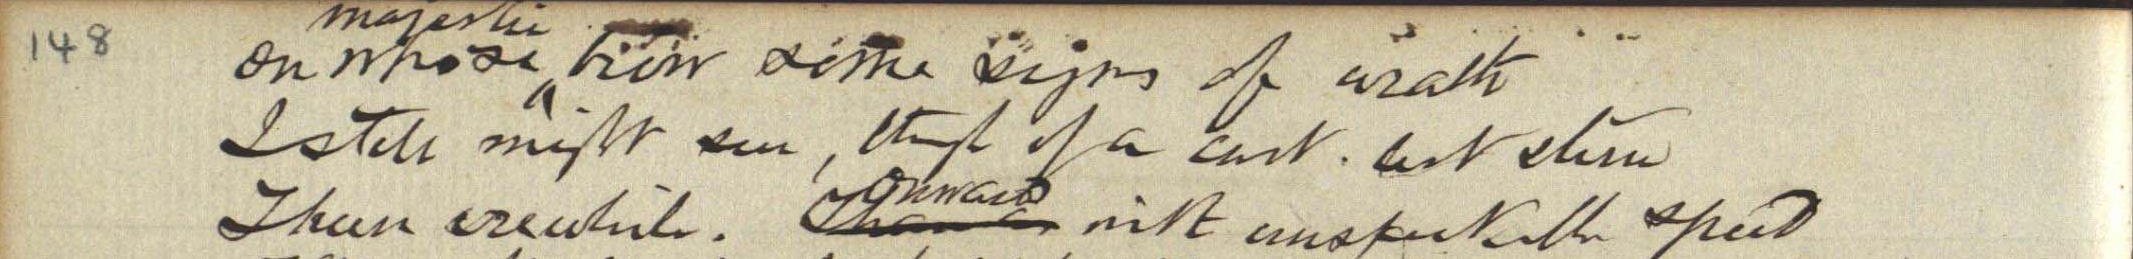 148
majestic
on whose brow some signs of wrath
I still might see, though of a cast less stern
Than erewhile. with unspeakable speed
onward